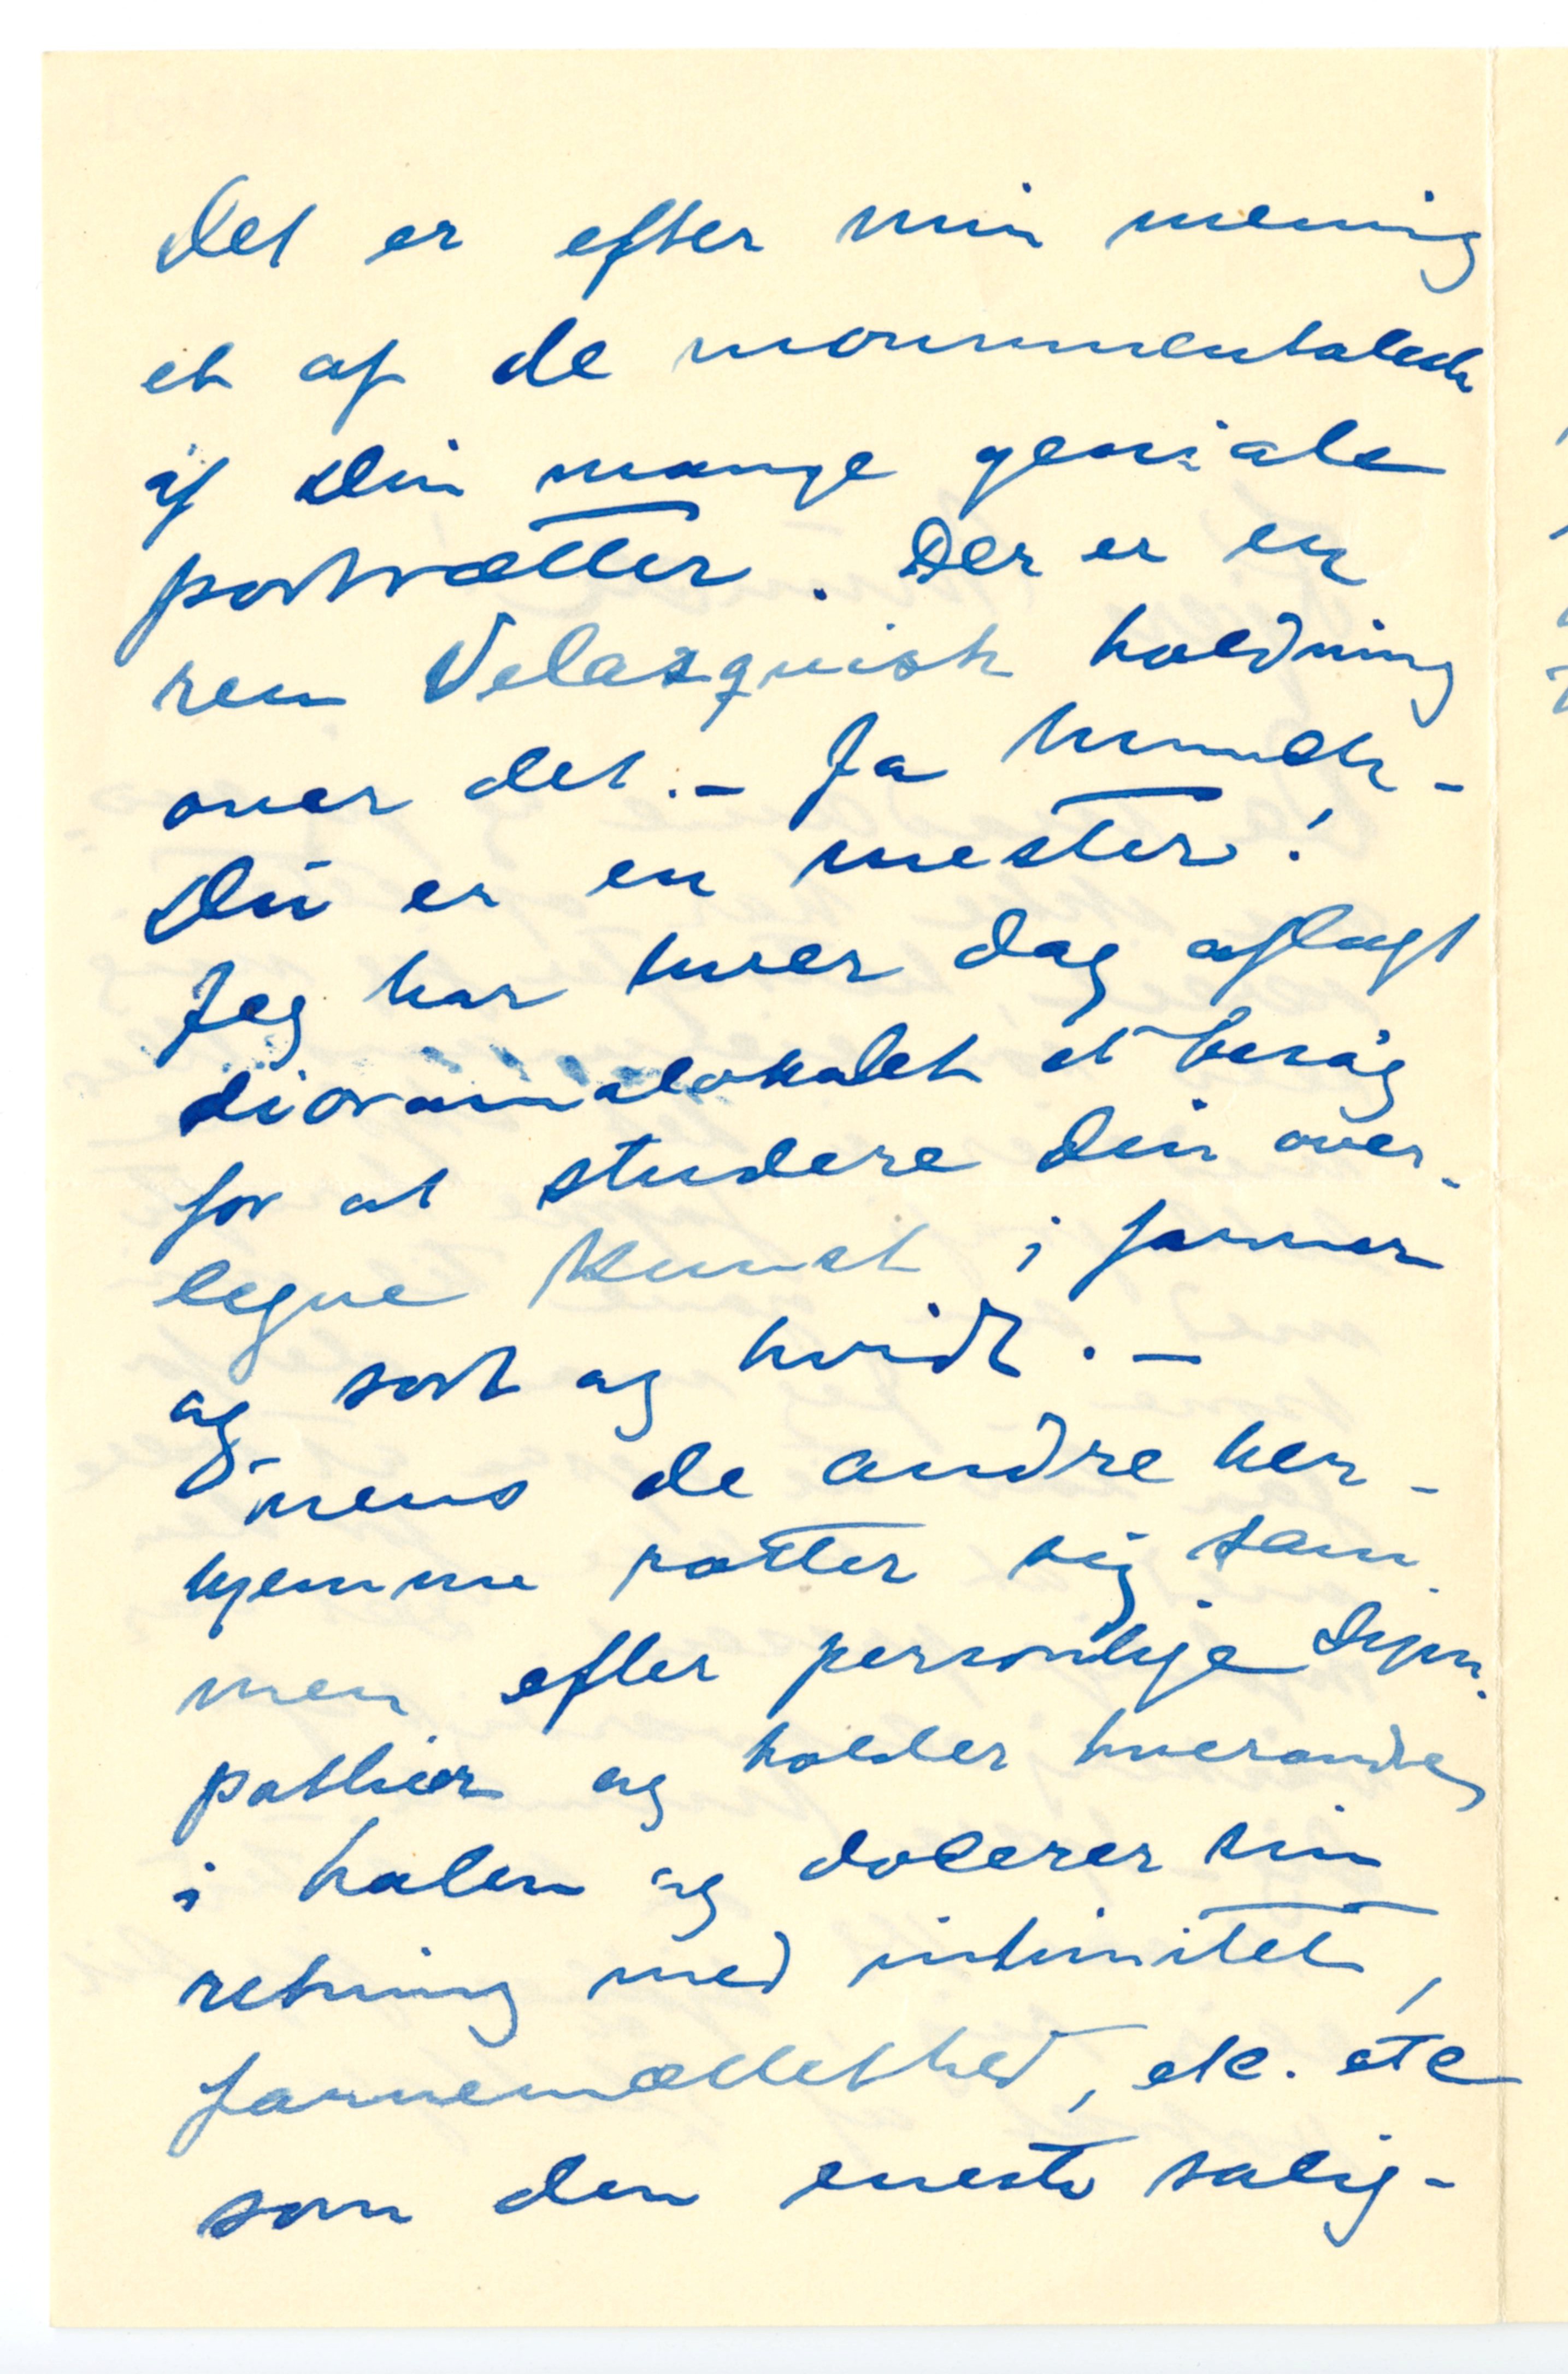 Det er efter min mening
et af de monumentaleste
af Din mange geniale
portrætter. Der er en
ren Velazquisk holdning
over det. – Ja Munch –
Du er en mester!
Jeg har hver dag aflagt
dioramalokalet et besøg
for at studere din over-
legne kunst i farver
og sort og hvidt. –
mens de andre her-
hjemme rotter sig sam-
men efter personlige sym-
pathier og holder hverandre
i halen og docerer sin
retning med intimitet,
farvemættethed, etc. etc
som den eneste salig-